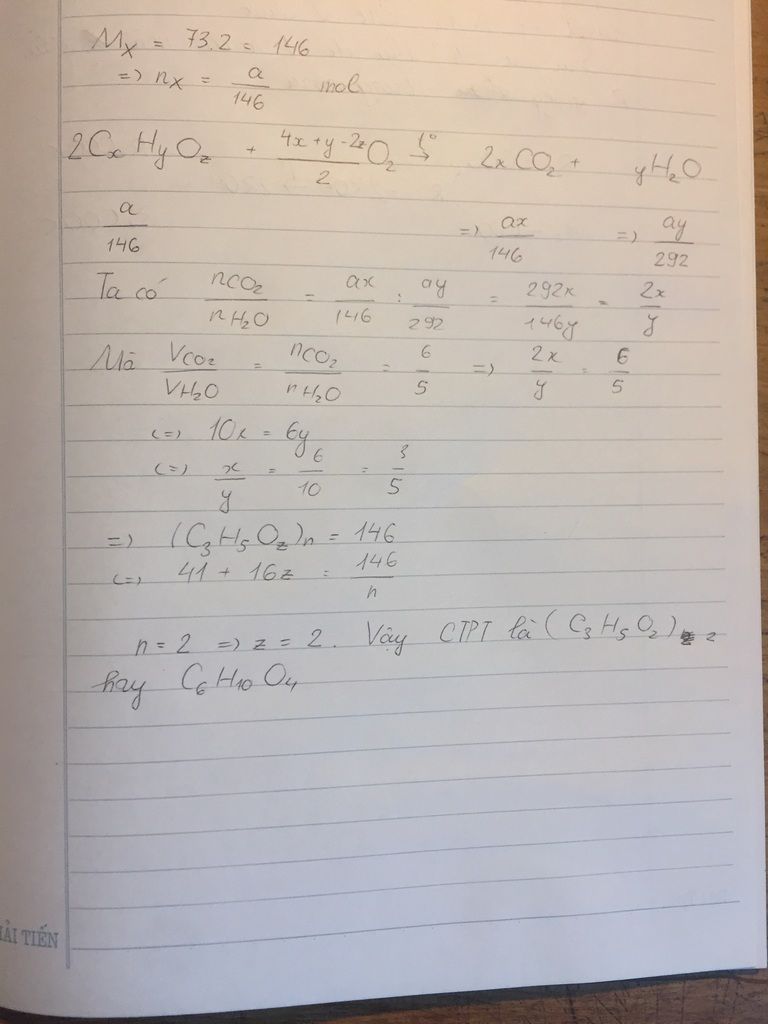 M_X = 73.2 = 146
=> n_X = a/146 mol
2C_xH_yO_z + (4x+y-2z)/2 O₂ →(t°) 2xCO₂ + yH₂O
a/146 => ax/146 => ay/292
Ta có nCO₂/nH₂O = ax/146 : ay/292 = 292x/146y = 2x/y
Mà VCO₂/VH₂O = nCO₂/nH₂O = 6/5 => 2x/y = 6/5
<=> 10x = 6y
<=> x/y = 6/10 = 3/5
=> (C₃H₅O_z)n = 146
<=> 41 + 16z = 146/n
n = 2 => z = 2. Vậy CTPT là (C₃H₅O₂)₂
hay C₆H₁₀O₄
ẢI TIẾN